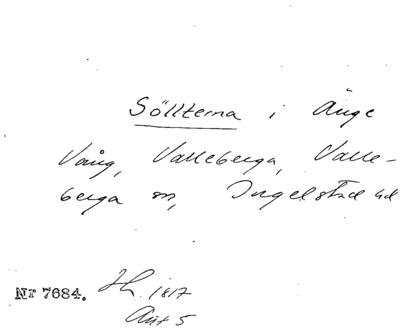 Söllterna i Änge
Vång, Valleberga, Valle-
berga sn, Ingelstad hd
Nr 7684. Hr. 1817
Akt 5